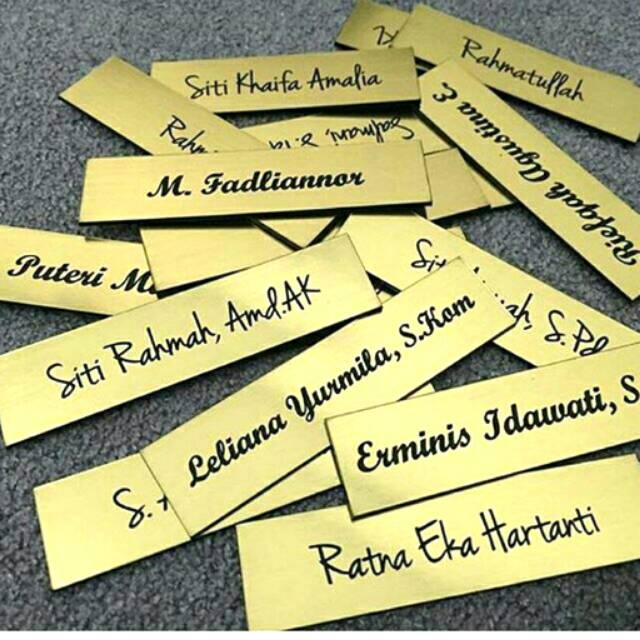 Rahmatullah
Siti Khaifa Amalia
Riefqah Agustina E
Rahm
Rahmani, S.Pd
M. Fadliannor
Puteri M
Siti Rahmah, Amd.AK
ah, S.Pd
Leliana Yurmila, S.Kom
Erminis Idawati, S
S.
Ratna Eka Hartanti